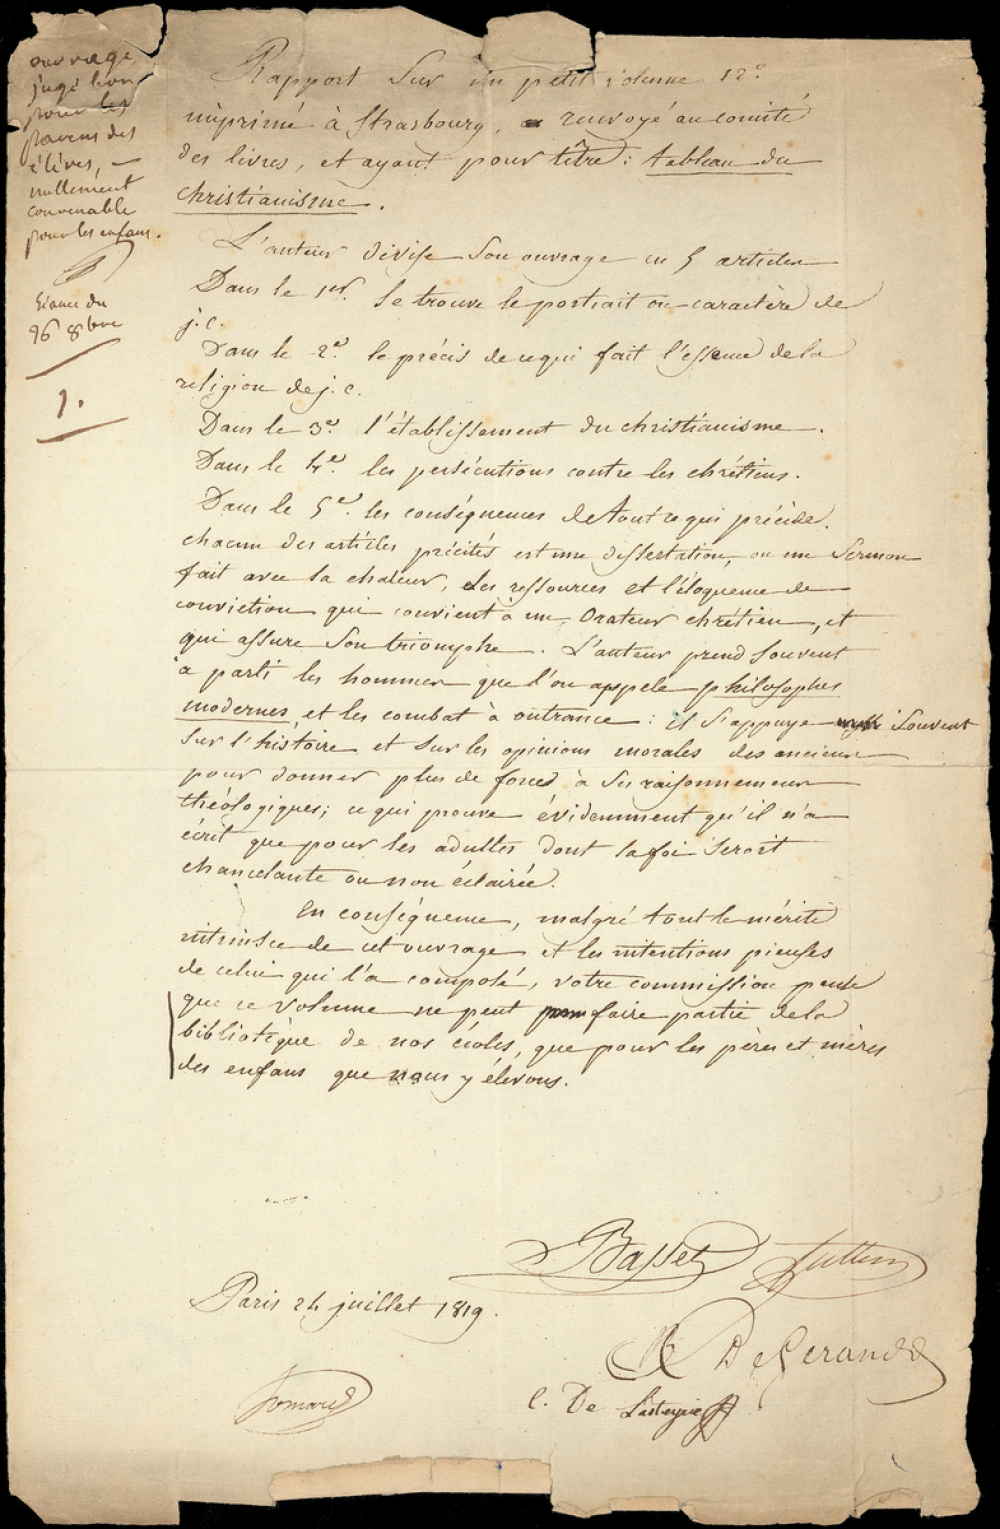 ouvrage
jugé bon
pour les
parens des
élèves, —
nullement
convenable
pour les enfans.
Séance du
26 8bre
1.
Rapport Sur un petit volume 12°
imprimé à Strasbourg, renvoyé au comité
des livres, et ayant pour titre: tableau du
christianisme.
L'auteur divise Son ouvrage en 5 articles
Dans le 1er. Se trouve le portrait ou caractère de
j. c.
Dans le 2e. le précis de ce qui fait l'essence de la
religion de j. c.
Dans le 3e. l'établissement du christianisme.
Dans le 4e. les persécutions contre les chrétiens.
Dans le 5e. les conséquences de tout ce qui précède.
chacun des articles précités est une dissertation, ou un Sermon
fait avec la chaleur, les ressources et l'éloquence de
conviction qui convient à un Orateur chrétien, et
qui assure Son triomphe. L'auteur prend Souvent
à parti les hommes que l'on appele philosophes
modernes, et les combat à outrance: il S'appuye Souvent
Sur l'histoire et Sur les opinions morales des anciens
pour donner plus de force à Ses raisonnemens
théologiques; ce qui prouve évidemment qu'il n'a
écrit que pour les adultes dont la foi Seroit
chancelante ou non éclairée.
En conséquence, malgré tout le mérite
intrinsec de cet ouvrage et les intentions pieuses
de celui qui l'a composé, votre commission pense
que ce volume ne peut faire partie de la
bibliotèque de nos écoles, que pour les pères et mères
des enfans que nous y élevons.
Basset Jullien
Paris 24 juillet 1819.
De Gerando
Jomard
C. De Lasteyrie